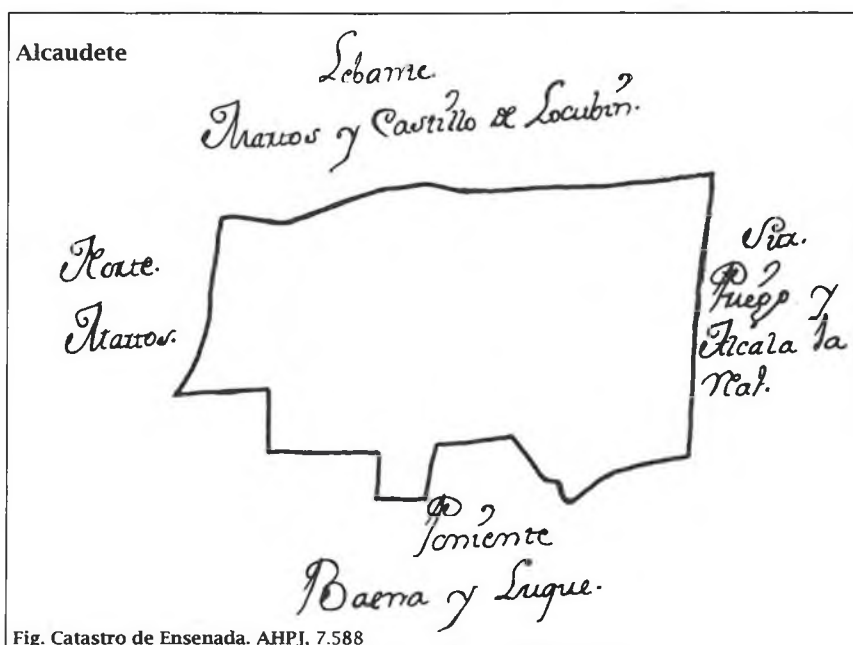 Alcaudete
Lebante.
Martos y Castillo de Locubin.
Norte.
Martos.
Sur.
Priego y
Alcala la
Ral.
Poniente
Baena y Luque.
Fig. Catastro de Ensenada. AHPJ, 7.588